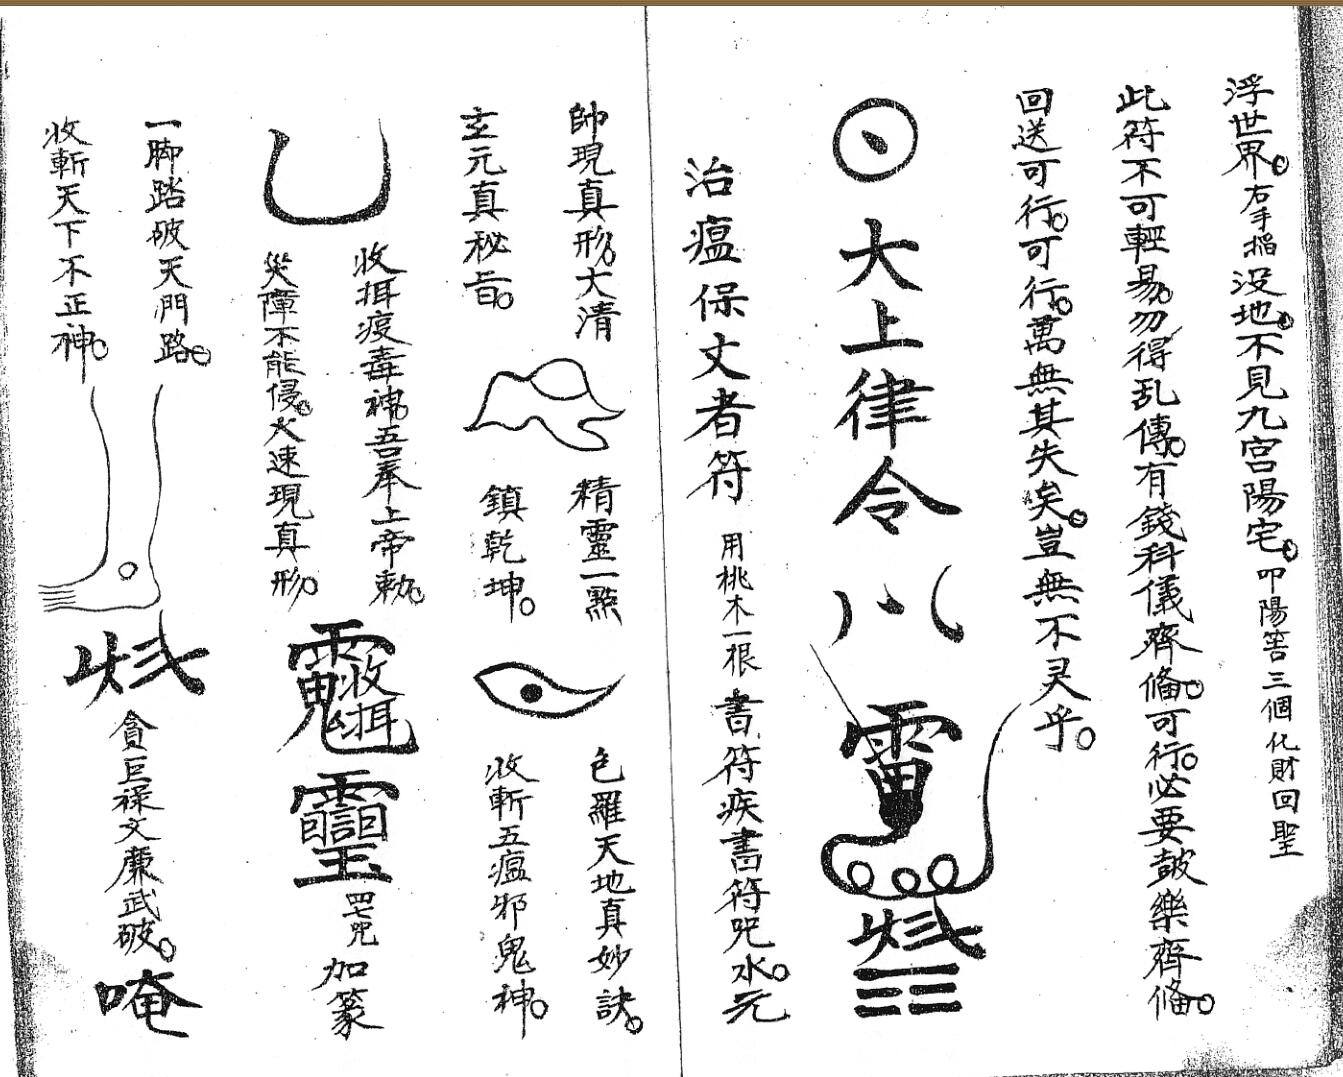 浮世界。右手搯沒地。不見九宮陽宅。叩陽筶三個化財回聖
此符不可輕易。勿得乱傳。有錢科儀齊備。可行。必要皷樂齊備。
回送可行。可行。萬無其失矣。豈無不灵乎。
大上律令
雷
治瘟保丈者符 用桃木一根書符疾書符咒水。元
帥現真形。大清 精靈一點 色羅天地真妙訣。
玄元真秘旨。 鎮乾坤。 收斬五瘟邪鬼神。
收抇疫毒神。吾奉上帝勅。
災障不能侵。火速現真形。
收抇
咒 加篆
一脚踏破天門路。 貪巨祿文廉武破。 唵
收斬天下不正神。